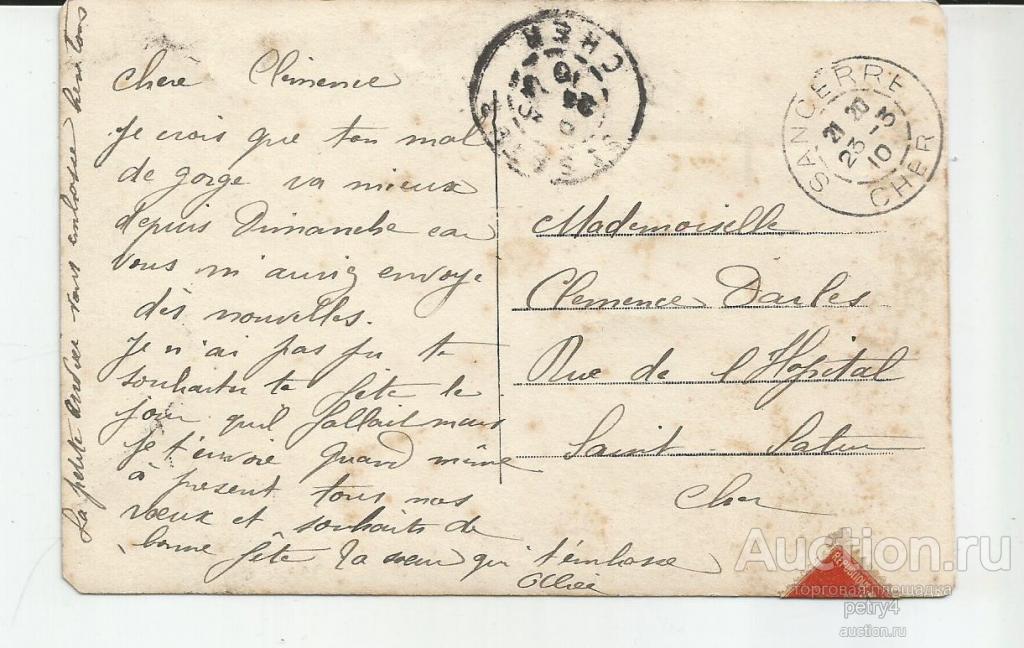 Chère Clémence
Je crois que ton mal
de gorge va mieux
depuis Dimanche car
vous m'auriez envoye
dés nouvelles.
Je n'ai pas pu te
souhaiter ta fête le
jour qu'il fallait mais
je t'envoie quand même
à present tous nos
voeux et souhaits de
bonne fête ta soeur qui t'embrasse
La petite vous embrasse bien tous
CHER
SANCERRE
21 20
23 - 3
10
CHER
Mademoiselle
Clemence Darles
Rue de l'Hôpital
Saint Satur
Cher
Auction.ru
торговая площадка
petry4
auction.ru